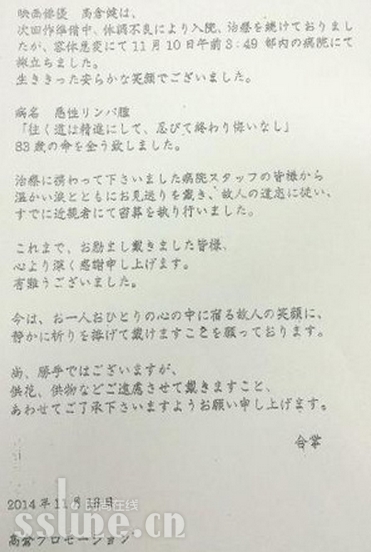 映画俳優　高倉健は、
次回作準備中、体調不良により入院、治療を続けておりまし
たが、容体急変にて11月10日午前3:49 都内の病院にて
旅立ちました。
生ききった安らかな笑顔でございました。
病名　悪性リンパ腫
「往く道は精進にして、忍びて終わり悔いなし」
83歳の命を全う致しました。
治療に携わって下さいました病院スタッフの皆様から
温かい涙とともにお見送りを戴き、故人の遺志に従い、
すでに近親者にて密葬を執り行いました。
これまで、お励まし戴きました皆様、
心より深く感謝申し上げます。
有難うございました。
今は、お一人おひとりの心の中に宿る故人の笑顔に、
静かに祈りを捧げて戴けますことを願っております。
尚、勝手ではございますが、
供花、供物などご遠慮させて戴きますこと、
あわせてご了承下さいますようお願い申し上げます。
合掌
2014年11月18日
高倉プロモーション
sslibe.cn